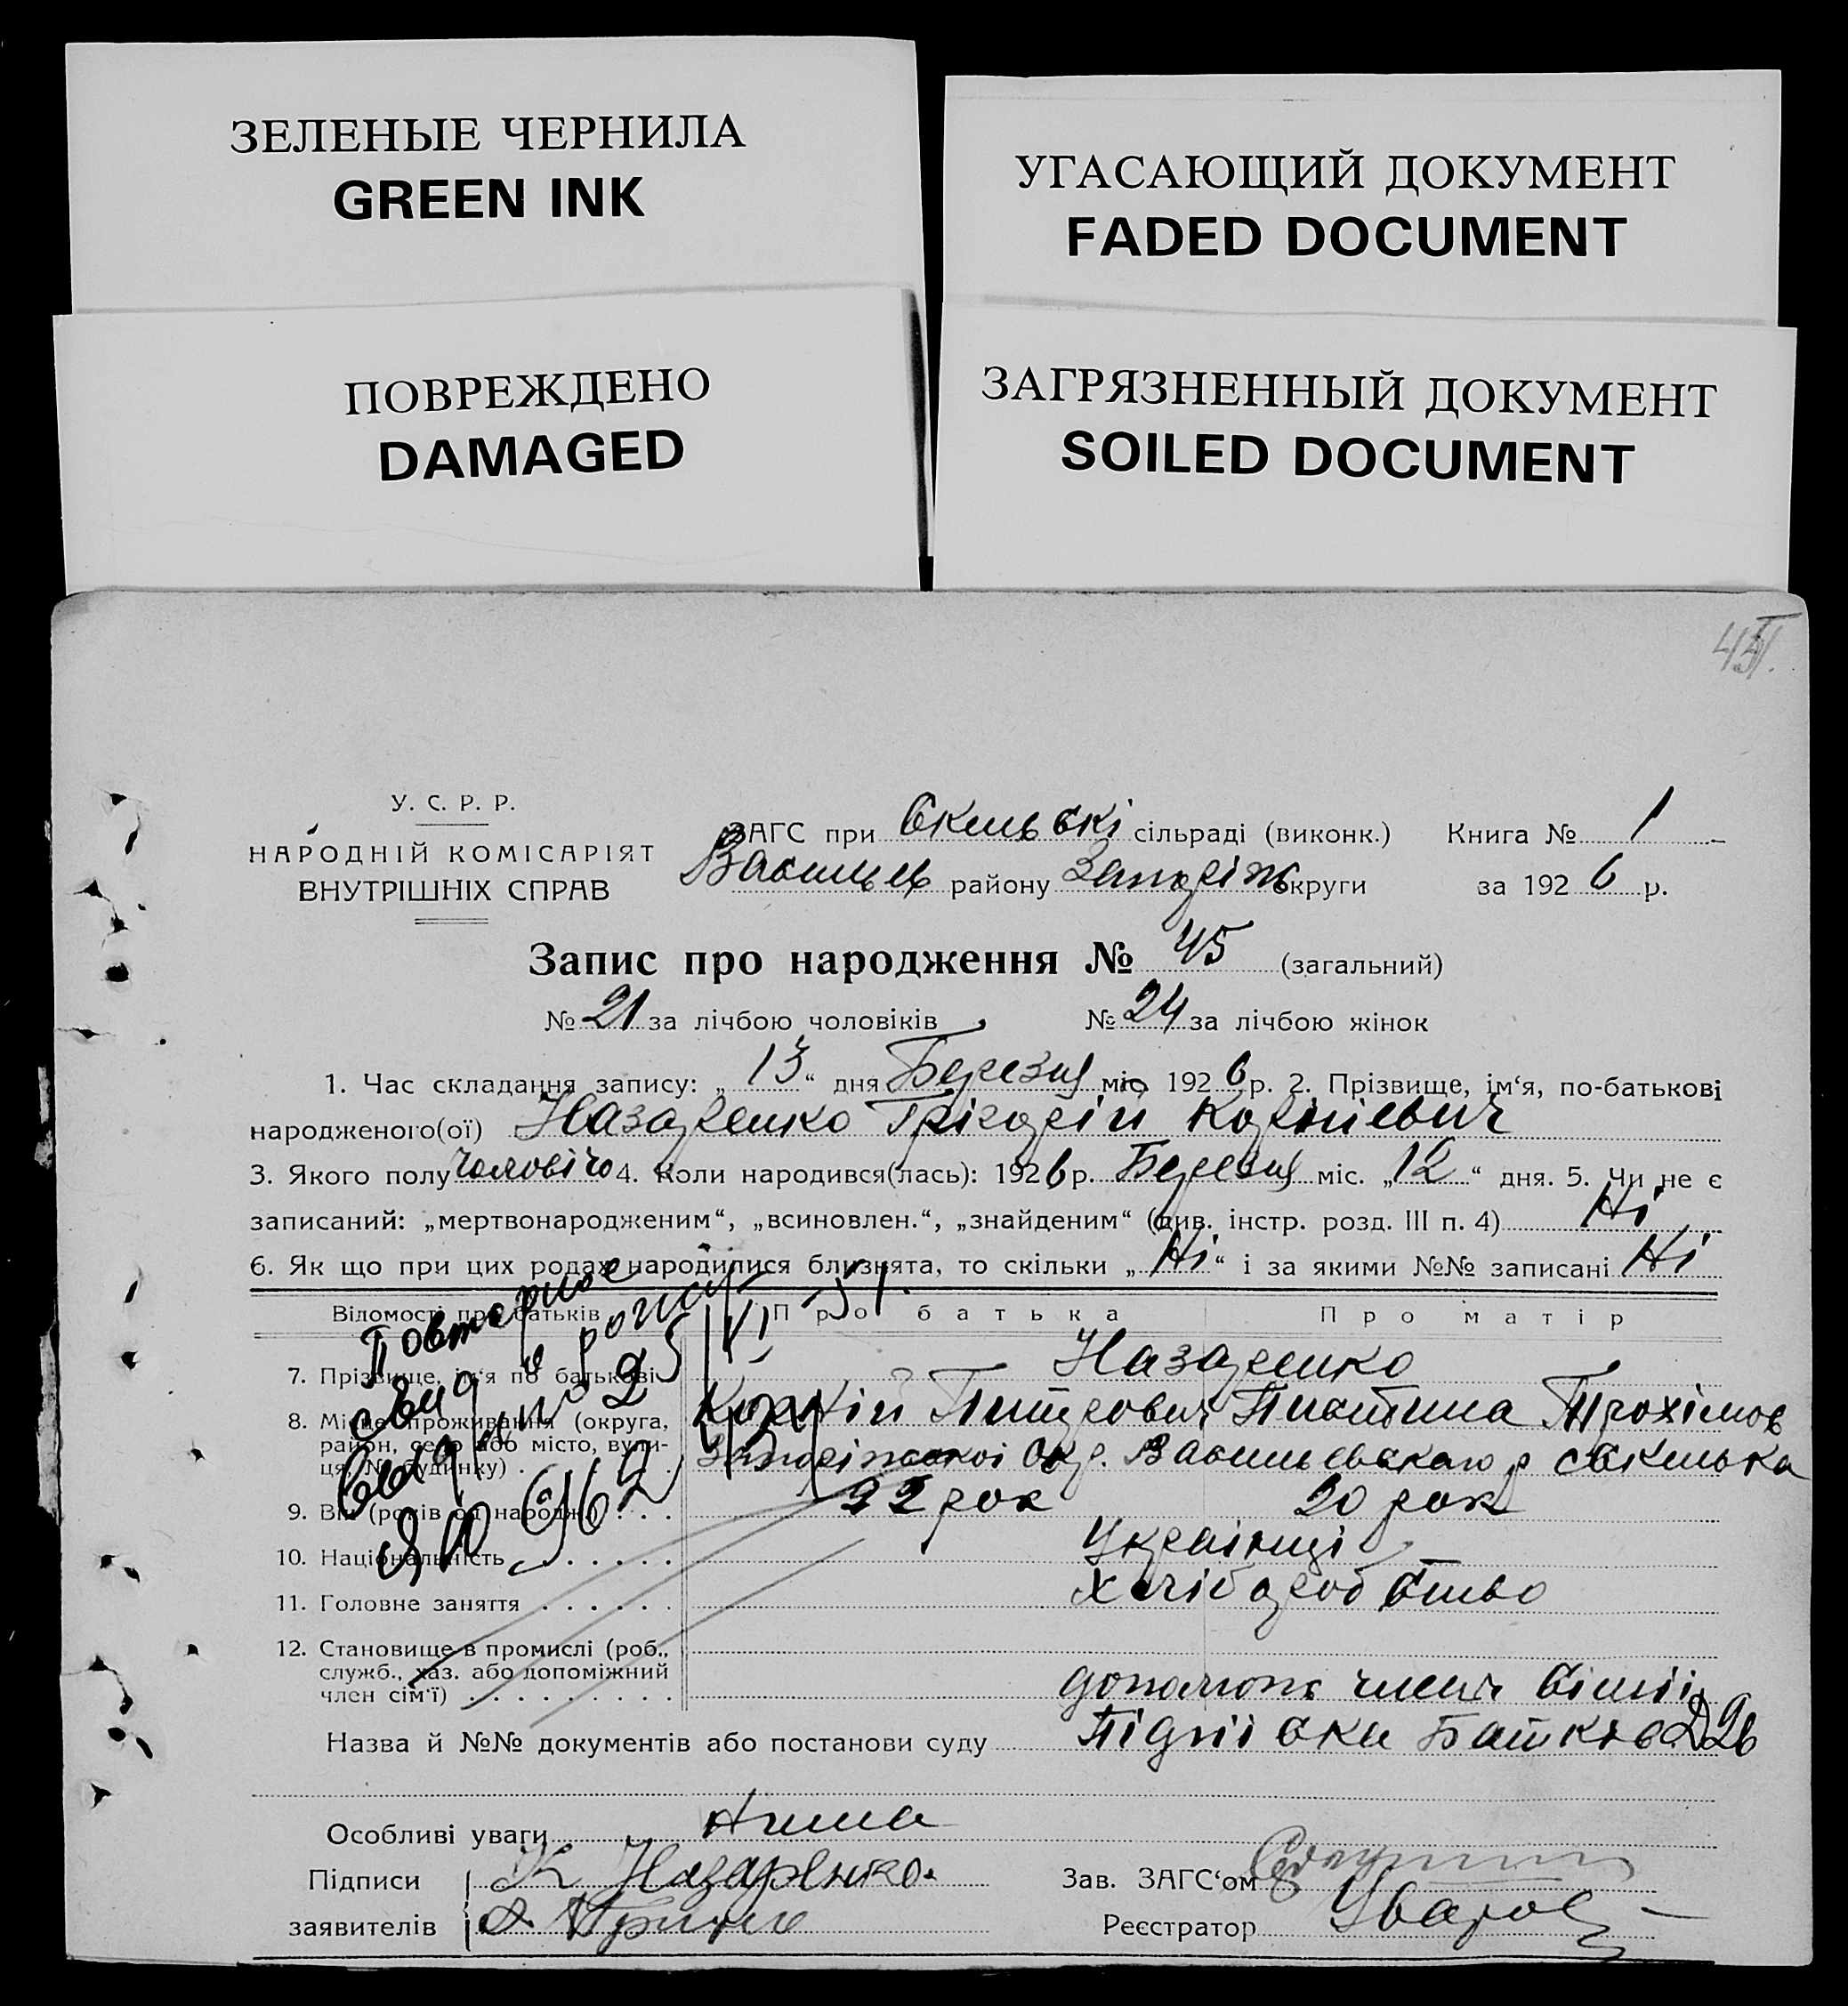 ЗЕЛЕНЫЕ ЧЕРНИЛА
GREEN INK
УГАСАЮЩИЙ ДОКУМЕНТ
FADED DOCUMENT
ПОВРЕЖДЕНО
DAMAGED
ЗАГРЯЗНЕННЫЙ ДОКУМЕНТ
SOILED DOCUMENT
У. С. Р. Р.
НАРОДНІЙ КОМІСАРІЯТ
ВНУТРІШНІХ СПРАВ
ЗАГС при Скельскі сільраді (виконк.) Книга № 1
Васильев району Запоріж округи за 1926 р.
Запис про народження № 45 (загальний)
№ 21 за лічбою чоловіків № 24 за лічбою жінок
1. Час складання запису: „13“ дня Березня міс. 1926 р. 2. Прізвище, ім‘я, по-батькові
народженого(ої) Назаренко Грігорій Корнієвич
3. Якого полу чоловічо 4. Коли народився(лась): 1926 р. Березня міс. „12“ дня. 5. Чи не є
записаний: „мертвонародженим“, „всиновлен.“, „знайденим“ (див. інстр. розд. III п. 4) Ні
6. Як що при цих родах народилися близнята, то скільки „Ні“ і за якими №№ записані Ні
Відомості про батьків Про батька Про матір
Повторное
свид о рожд
7. Прізвище, ім‘я по батькові Назаренко
Корній Питрович Трохімов
8. Місце проживання (округа,
район, село або місто, вули-
ця, № будинку) Запоріжскої Окр. Васильевскаго р Скелька
9. Вік (років од народж.) 22 рок 20 рок
10. Національність Українці
11. Головне заняття хліборобство
12. Становище в промислі (роб.,
служб., хаз. або допоміжний
член сім‘ї) допомож члени сімії
Назва й №№ документів або постанови суду
Особливі уваги Нима
Підписи К Назаренко
заявителів
Зав. ЗАГС‘ом
Реєстратор Уваров